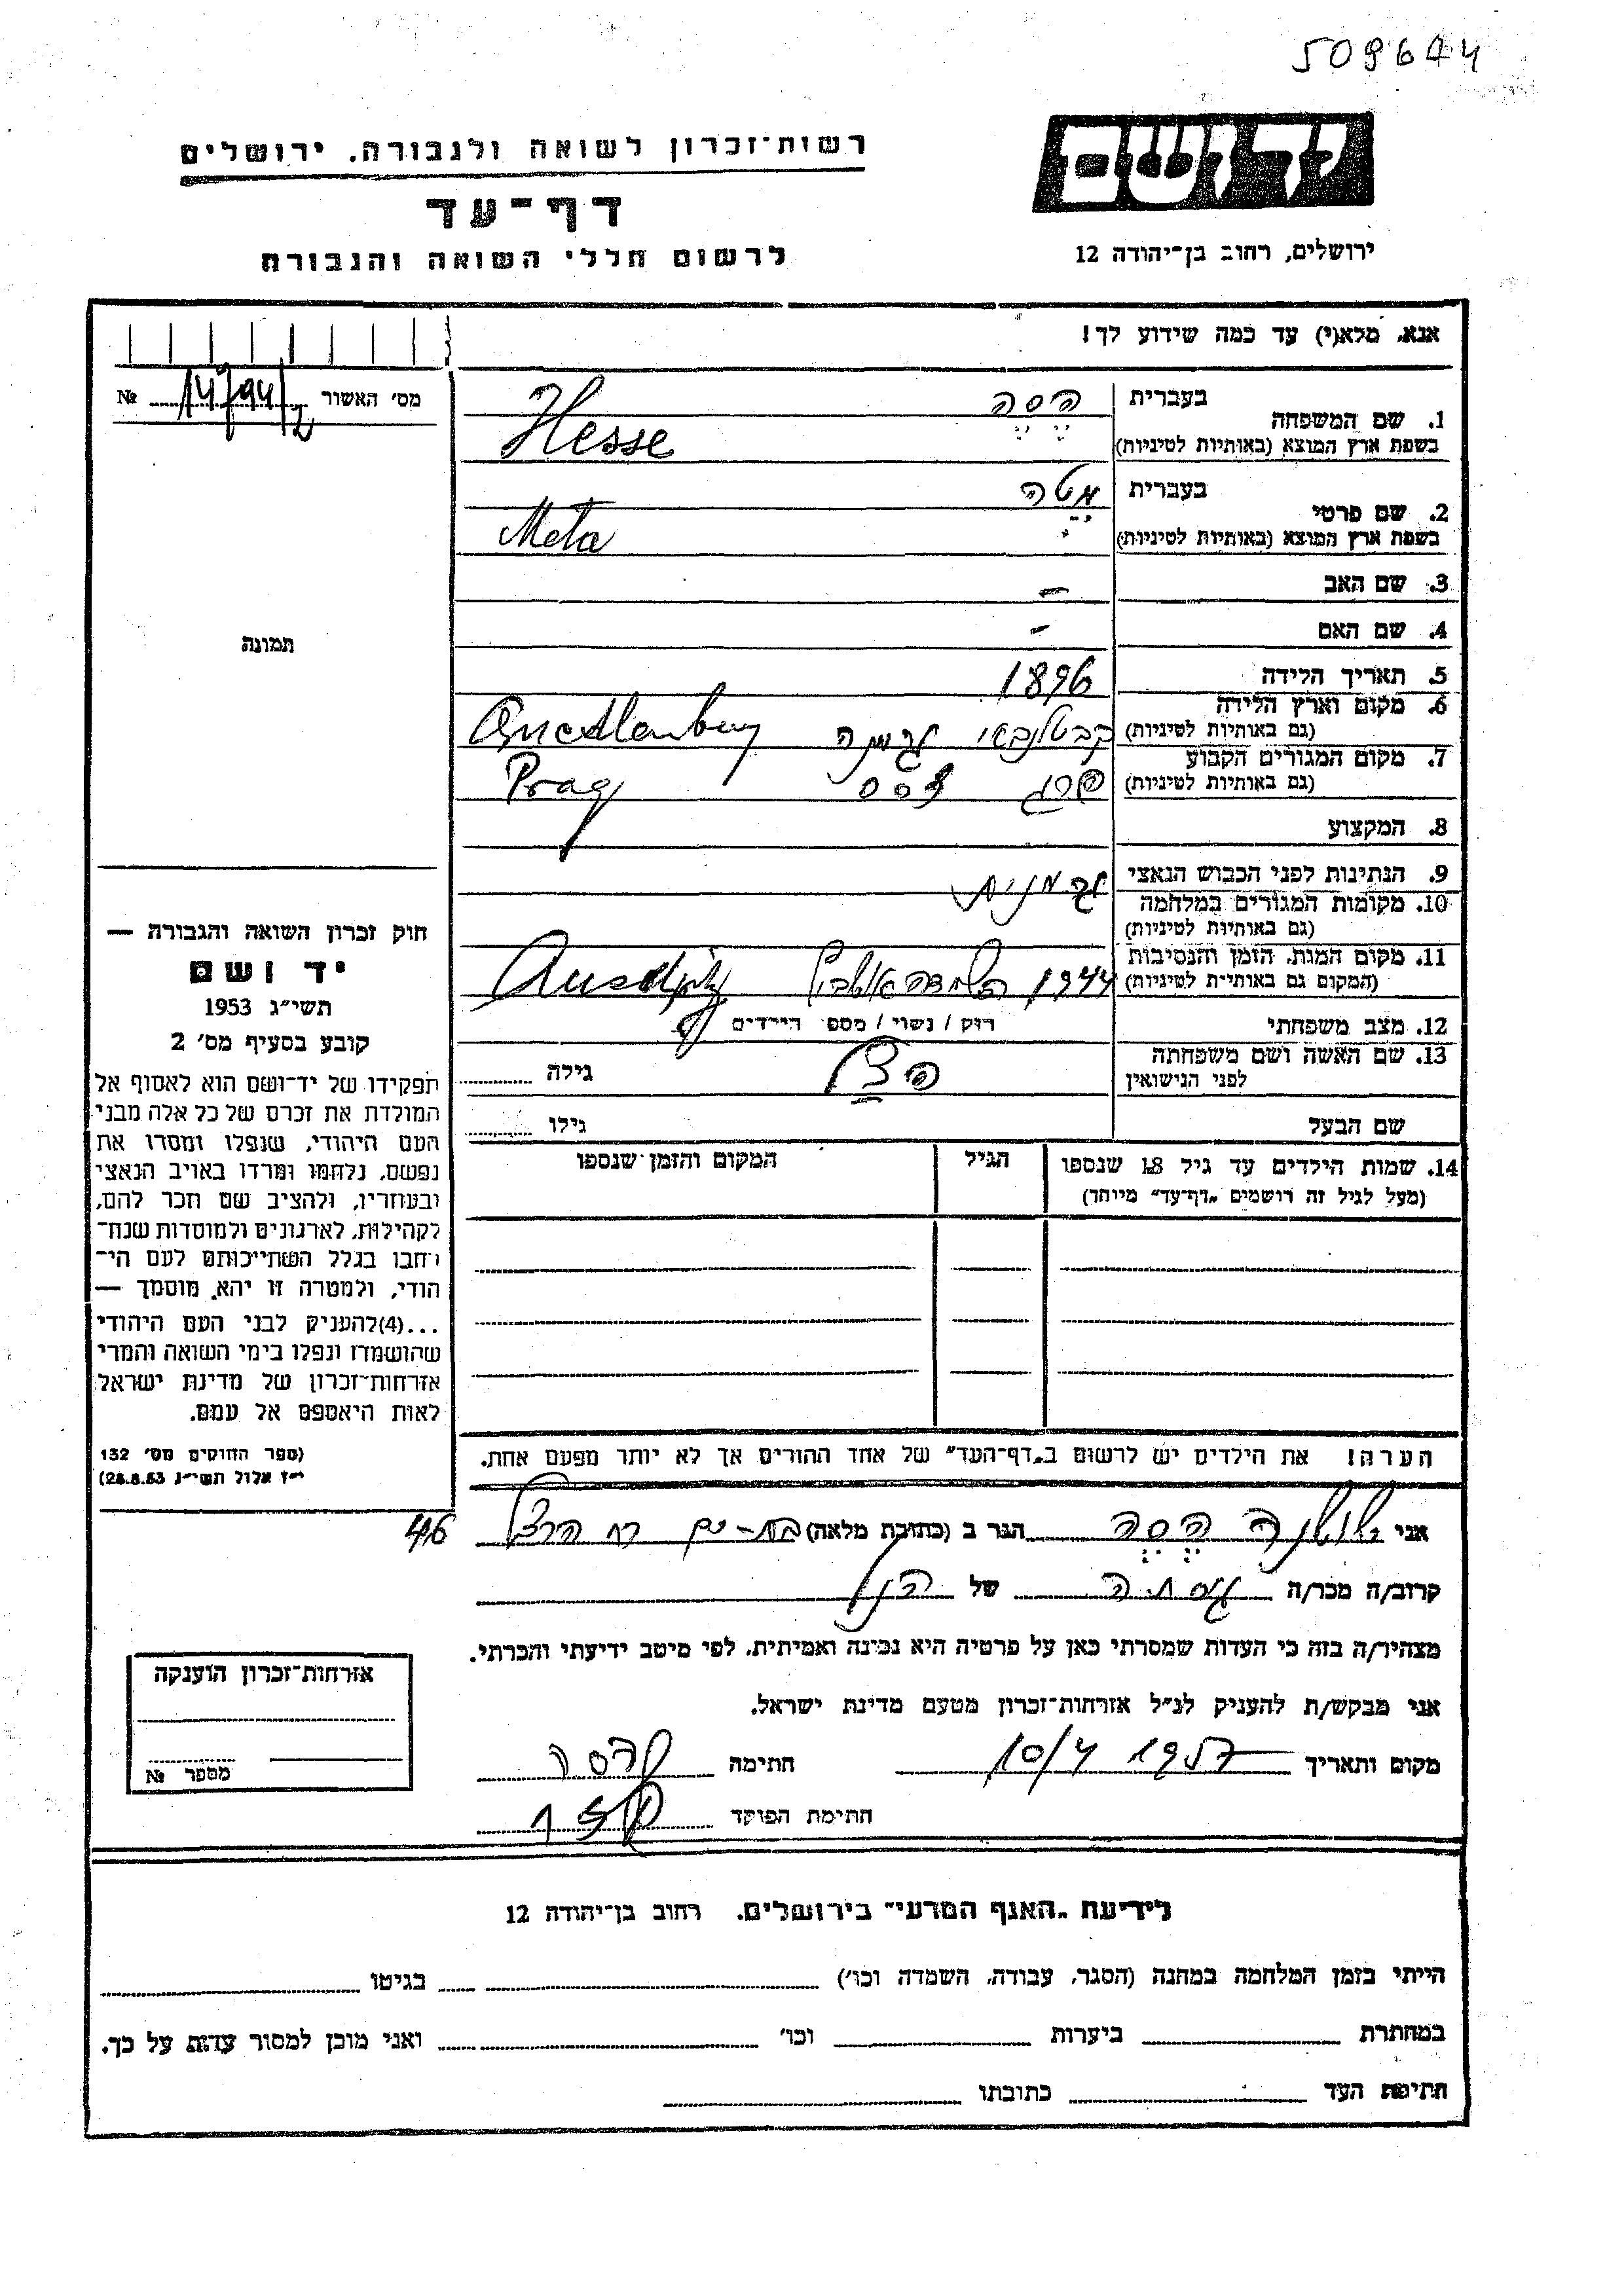 509644
יד ושם
רשות־זכרון לשואה ולגבורה, ירושלים
דף־עד
לרשום חללי השואה והגבורה
ירושלים, רחוב בן־יהודה 12
אנא, מלא(י) עד כמה שידוע לך!
מס׳ האשור № 14/94/2
1. שם המשפחה
בעברית הסה
בשפת ארץ המוצא (באותיות לטיניות) Hesse
2. שם פרטי
בעברית מטה
בשפת ארץ המוצא (באותיות לטיניות) Meta
3. שם האב –
4. שם האם –
5. תאריך הלידה 1896
6. מקום וארץ הלידה
(גם באותיות לטיניות) גרמניה Quedlenburg
7. מקום המגורים הקבוע
(גם באותיות לטיניות) פרג Prag
8. המקצוע
9. הנתינות לפני הכבוש הנאצי גרמנית
10. מקומות המגורים במלחמה
(גם באותיות לטיניות)
11. מקום המות, הזמן והנסיבות
(המקום גם באותיות לטיניות) 1944
12. מצב משפחתי רוק / נשוי / מספר הילדים
13. שם האשה ושם משפחתה
לפני הנישואין גילה
שם הבעל גילו
14. שמות הילדים עד גיל 18 שנספו
(מעל לגיל זה רושמים „דף־עד״ מיוחד)
הגיל
המקום והזמן שנספו
הערה! את הילדים יש לרשום ב„דף־העד״ של אחד ההורים אך לא יותר מפעם אחת.
תמונה
חוק זכרון השואה והגבורה —
יד ושם
תשי״ג 1953
קובע בסעיף מס׳ 2
תפקידו של יד־ושם הוא לאסוף אל
המולדת את זכרם של כל אלה מבני
העם היהודי, שנפלו ומסרו את
נפשם, נלחמו ומרדו באויב הנאצי
ובעוזריו, ולהציב שם וזכר להם,
לקהילות, לארגונים ולמוסדות שנח־
רבו בגלל השתייכותם לעם הי־
הודי, ולמטרה זו יהא מוסמך —
...(4)להעניק לבני העם היהודי
שהושמדו ונפלו בימי השואה והמרי
אזרחות־זכרון של מדינת ישראל
לאות היאספם אל עמם.
(ספר החוקים מס׳ 132
י״ז אלול תשי״ג 28.8.53)
אני הסה הגר ב (כתובת מלאה) בת-ים רח הרצל 46
קרוב/ה מכר/ה גיסתה של הנ״ל
מצהיר/ה בזה כי העדות שמסרתי כאן על פרטיה היא נכונה ואמיתית, לפי מיטב ידיעתי והכרתי.
אני מבקש/ת להעניק לנ״ל אזרחות־זכרון מטעם מדינת ישראל.
מקום ותאריך 10/4 1957 חתימה
חתימת הפוקד
אזרחות־זכרון הוענקה
מספר №
לידיעת „האגף המדעי״ בירושלים, רחוב בן־יהודה 12
הייתי בזמן המלחמה במחנה (הסגר, עבודה, השמדה וכו׳) בגיטו
במחתרת ביערות וכו׳ ואני מוכן למסור עדות על כך.
חתימת העד כתובתו